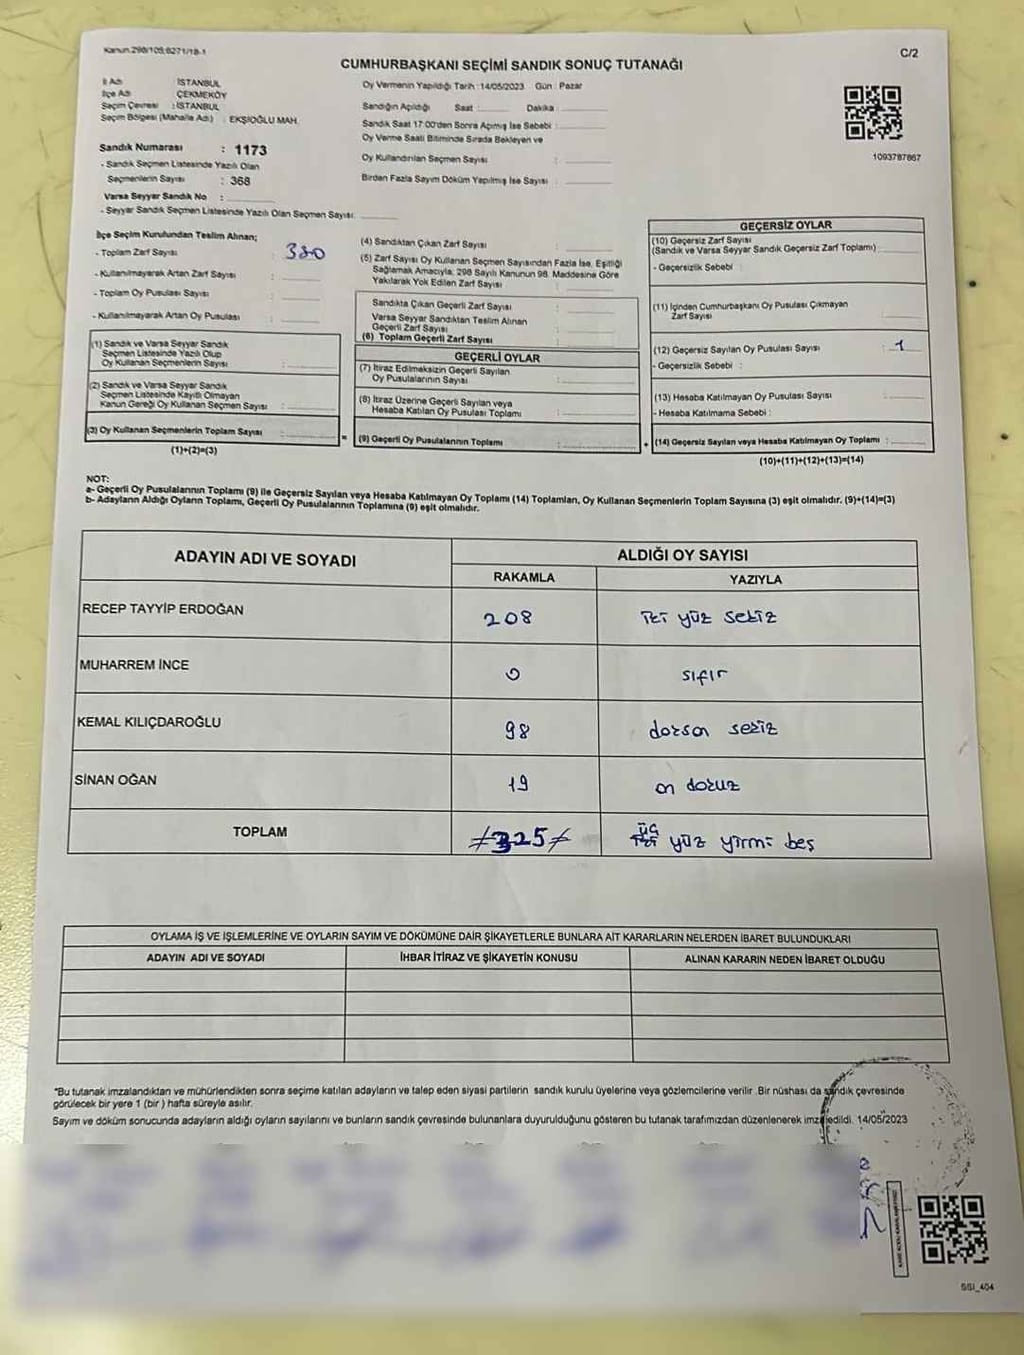 Kanun.298/105;6271/18-1
C/2
CUMHURBAŞKANI SEÇİMİ SANDIK SONUÇ TUTANAĞI
İl Adı : İSTANBUL
İlçe Adı : ÇEKMEKÖY
Seçim Çevresi : İSTANBUL
Seçim Bölgesi (Mahalle Adı) : EKŞİOĞLU MAH.
Sandık Numarası : 1173
- Sandık Seçmen Listesinde Yazılı Olan
Seçmenlerin Sayısı : 368
Varsa Seyyar Sandık No :
- Seyyar Sandık Seçmen Listesinde Yazılı Olan Seçmen Sayısı:
Oy Vermenin Yapıldığı Tarih : 14/05/2023 Gün : Pazar
Sandığın Açıldığı Saat : Dakika :
Sandık Saat 17:00'den Sonra Açımış İse Sebebi :
Oy Verme Saati Bitiminde Sırada Bekleyen ve
Oy Kullandırılan Seçmen Sayısı :
Birden Fazla Sayım Döküm Yapılmış İse Sayısı :
1093787867
İlçe Seçim Kurulundan Teslim Alınan;
- Toplam Zarf Sayısı : 380
- Kullanılmayarak Artan Zarf Sayısı :
- Toplam Oy Pusulası Sayısı :
- Kullanılmayarak Artan Oy Pusulası :
(1) Sandık ve Varsa Seyyar Sandık
Seçmen Listesinde Yazılı Olup
Oy Kullanan Seçmenlerin Sayısı :
(2) Sandık ve Varsa Seyyar Sandık
Seçmen Listesinde Kayıtlı Olmayan
Kanun Gereği Oy Kullanan Seçmen Sayısı :
(3) Oy Kullanan Seçmenlerin Toplam Sayısı :
(1)+(2)=(3)
(4) Sandıktan Çıkan Zarf Sayısı :
(5) Zarf Sayısı Oy Kullanan Seçmen Sayısından Fazla İse, Eşitliği
Sağlamak Amacıyla; 298 Sayılı Kanunun 98. Maddesine Göre
Yakılarak Yok Edilen Zarf Sayısı :
Sandıkta Çıkan Geçerli Zarf Sayısı :
Varsa Seyyar Sandıktan Teslim Alınan
Geçerli Zarf Sayısı :
(6) Toplam Geçerli Zarf Sayısı :
GEÇERLİ OYLAR
(7) İtiraz Edilmeksizin Geçerli Sayılan
Oy Pusulalarının Sayısı :
(8) İtiraz Üzerine Geçerli Sayılan veya
Hesaba Katılan Oy Pusulası Toplamı :
= (9) Geçerli Oy Pusulalarının Toplamı :
GEÇERSİZ OYLAR
(10) Geçersiz Zarf Sayısı
(Sandık ve Varsa Seyyar Sandık Geçersiz Zarf Toplamı) :
- Geçersizlik Sebebi :
(11) İçinden Cumhurbaşkanı Oy Pusulası Çıkmayan
Zarf Sayısı :
(12) Geçersiz Sayılan Oy Pusulası Sayısı : 1
- Geçersizlik Sebebi :
(13) Hesaba Katılmayan Oy Pusulası Sayısı :
- Hesaba Katılmama Sebebi :
+ (14) Geçersiz Sayılan veya Hesaba Katılmayan Oy Toplamı :
(10)+(11)+(12)+(13)=(14)
NOT:
a- Geçerli Oy Pusulalarının Toplamı (9) ile Geçersiz Sayılan veya Hesaba Katılmayan Oy Toplamı (14) Toplamları, Oy Kullanan Seçmenlerin Toplam Sayısına (3) eşit olmalıdır. (9)+(14)=(3)
b- Adayların Aldığı Oyların Toplamı, Geçerli Oy Pusulalarının Toplamına (9) eşit olmalıdır.
ADAYIN ADI VE SOYADI
ALDIĞI OY SAYISI
RAKAMLA YAZIYLA
RECEP TAYYİP ERDOĞAN 208 iki yüz sekiz
MUHARREM İNCE 0 sıfır
KEMAL KILIÇDAROĞLU 98 doksan sekiz
SİNAN OĞAN 19 on dokuz
TOPLAM ≠325≠ üç yüz yirmi beş
OYLAMA İŞ VE İŞLEMLERİNE VE OYLARIN SAYIM VE DÖKÜMÜNE DAİR ŞİKAYETLERLE BUNLARA AİT KARARLARIN NELERDEN İBARET BULUNDUKLARI
ADAYIN ADI VE SOYADI İHBAR İTİRAZ VE ŞİKAYETİN KONUSU ALINAN KARARIN NEDEN İBARET OLDUĞU
*Bu tutanak imzalandıktan ve mühürlendikten sonra seçime katılan adayların ve talep eden siyasi partilerin sandık kurulu üyelerine veya gözlemcilerine verilir. Bir nüshası da sandık çevresinde
görülecek bir yere 1 (bir) hafta süreyle asılır.
Sayım ve döküm sonucunda adayların aldığı oyların sayılarını ve bunların sandık çevresinde bulunanlara duyurulduğunu gösteren bu tutanak tarafımızdan düzenlenerek imza edildi. 14/05/2023
SSI_404